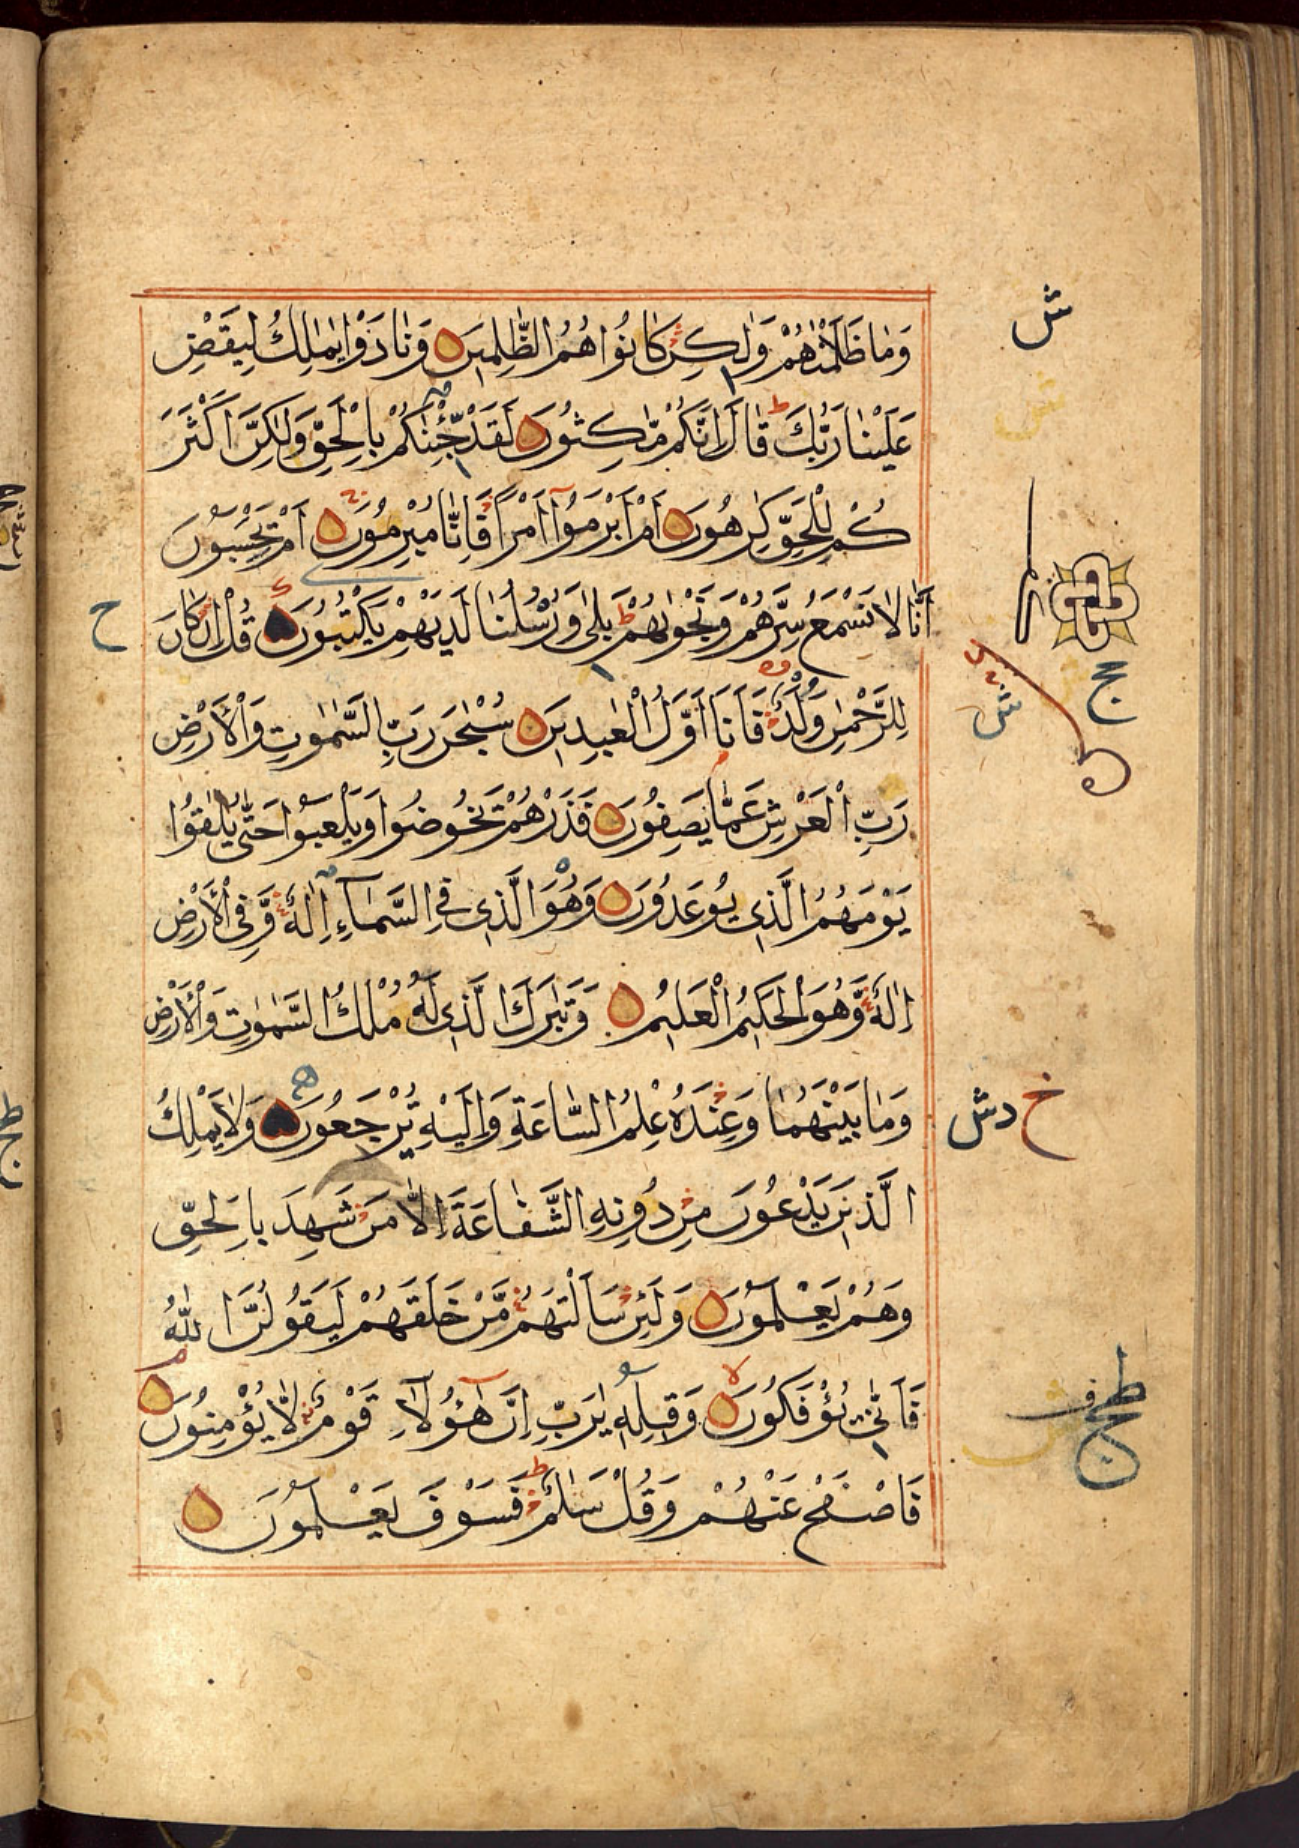 وَمَا ظَلَمْنٰهُمْ وَلٰكِنْ كَانُوا هُمُ الظّٰلِمِينَ وَنَادَوْا يٰمٰلِكُ لِيَقْضِ
عَلَيْنَا رَبُّكَ قَالَ إِنَّكُمْ مّٰكِثُونَ لَقَدْ جِئْنٰكُمْ بِالْحَقِّ وَلٰكِنَّ أَكْثَرَ
كُمْ لِلْحَقِّ كٰرِهُونَ أَمْ أَبْرَمُوٓا أَمْرًا فَإِنَّا مُبْرِمُونَ أَمْ يَحْسَبُونَ
أَنَّا لَا نَسْمَعُ سِرَّهُمْ وَنَجْوٰىهُمْ بَلٰى وَرُسُلُنَا لَدَيْهِمْ يَكْتُبُونَ قُلْ إِنْ كَانَ
لِلرَّحْمٰنِ وَلَدٌ فَأَنَا أَوَّلُ الْعٰبِدِينَ سُبْحٰنَ رَبِّ السَّمٰوٰتِ وَالْأَرْضِ
رَبِّ الْعَرْشِ عَمَّا يَصِفُونَ فَذَرْهُمْ يَخُوضُوا وَيَلْعَبُوا حَتّٰى يُلٰقُوا
يَوْمَهُمُ الَّذِي يُوعَدُونَ وَهُوَ الَّذِي فِي السَّمَآءِ إِلٰهٌ وَّفِي الْأَرْضِ
إِلٰهٌ وَّهُوَ الْحَكِيمُ الْعَلِيمُ وَتَبٰرَكَ الَّذِي لَهُ مُلْكُ السَّمٰوٰتِ وَالْأَرْضِ
وَمَا بَيْنَهُمَا وَعِنْدَهُ عِلْمُ السَّاعَةِ وَإِلَيْهِ تُرْجَعُونَ وَلَا يَمْلِكُ
الَّذِينَ يَدْعُونَ مِنْ دُونِهِ الشَّفَاعَةَ إِلَّا مَنْ شَهِدَ بِالْحَقِّ
وَهُمْ يَعْلَمُونَ وَلَئِنْ سَأَلْتَهُمْ مَّنْ خَلَقَهُمْ لَيَقُولُنَّ اللّٰهُ
فَأَنّٰى يُؤْفَكُونَ وَقِيلِهِ يٰرَبِّ إِنَّ هٰٓؤُلَآءِ قَوْمٌ لَّا يُؤْمِنُونَ
فَاصْفَحْ عَنْهُمْ وَقُلْ سَلٰمٌ فَسَوْفَ يَعْلَمُونَ
ش
ح
ج
ش
خ
دش